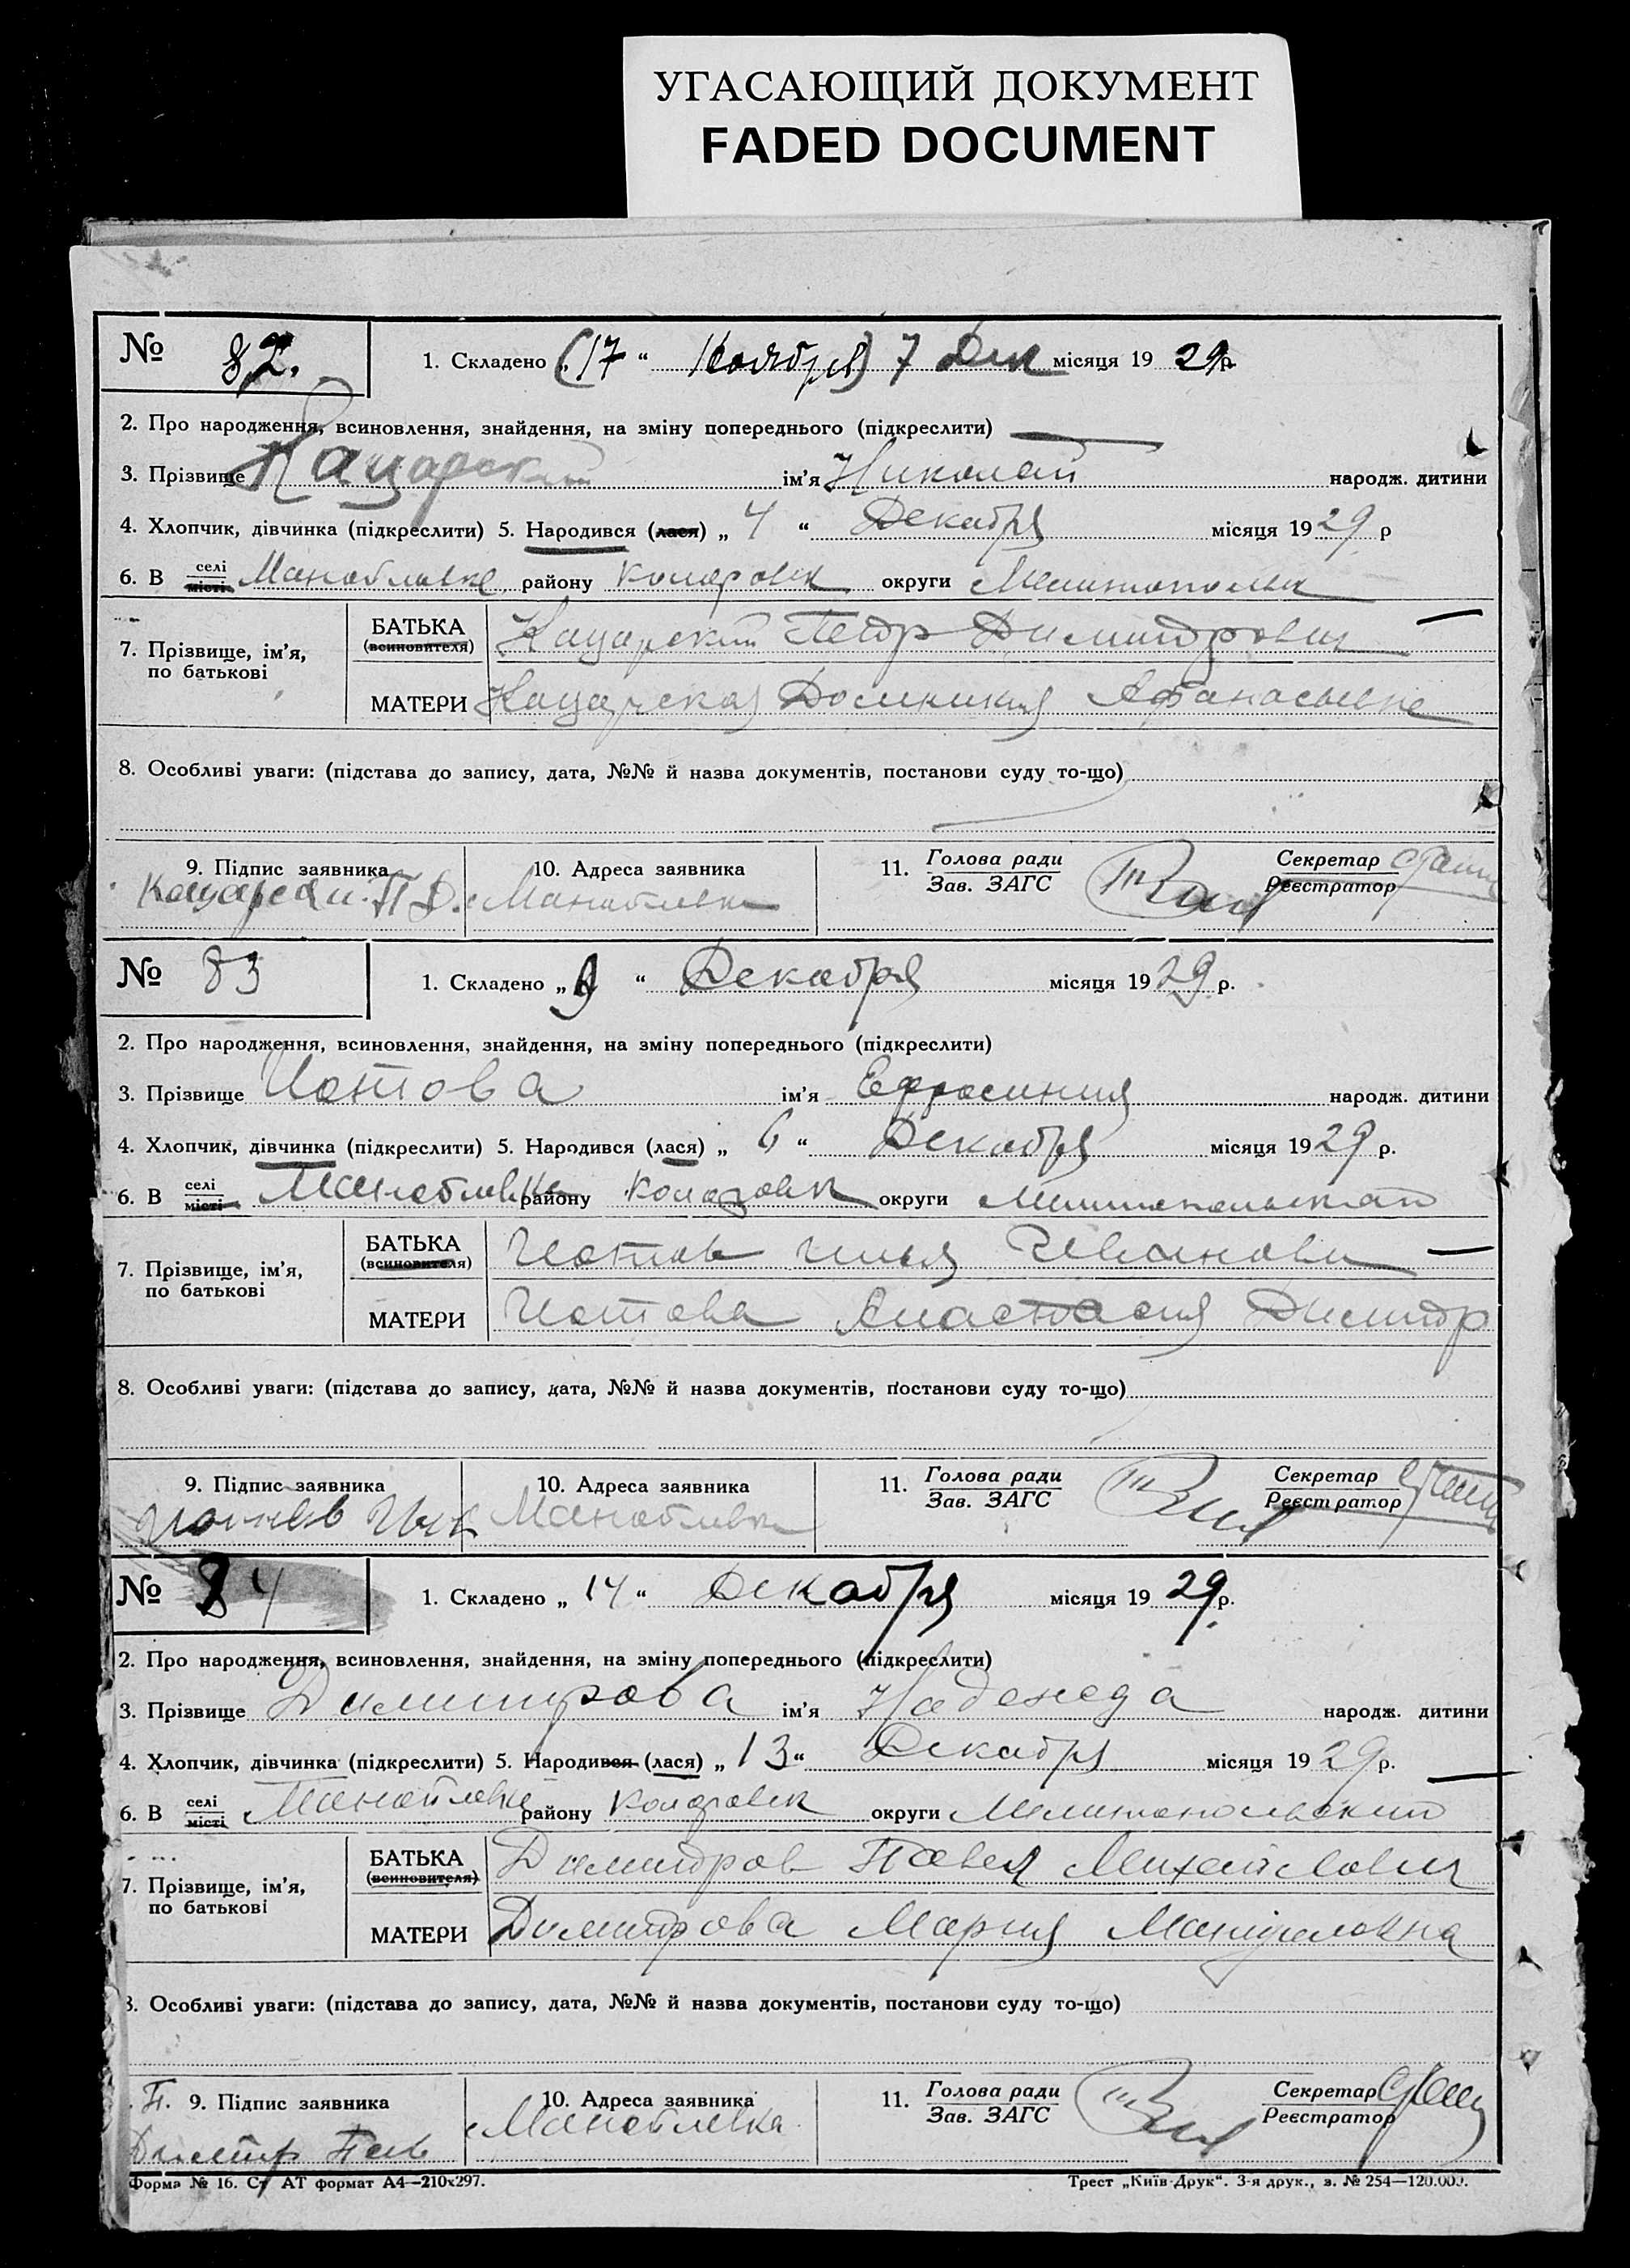 УГАСАЮЩИЙ ДОКУМЕНТ
FADED DOCUMENT
№ 82. 1. Складено „(17 “ Ноября) 7 Дек місяця 19 29 р.
2. Про народження, всиновлення, знайдення, на зміну попереднього (підкреслити)
3. Прізвище Кацарский ім'я Николай народж. дитини
4. Хлопчик, дівчинка (підкреслити) 5. Народився (лася) „ 4 “ Декабря місяця 19 29 р
6. В селі місті Манойловке району Коларовск округи Мелитопольск
7. Прізвище, ім'я, по батькові
БАТЬКА (всиновителя) Кацарский Петр Димитрович
МАТЕРИ Кацарская Домникия Афанасьевне
8. Особливі уваги: (підстава до запису, дата, №№ й назва документів, постанови суду то-що)
9. Підпис заявника 10. Адреса заявника 11. Голова ради Зав. ЗАГС Секретар Реєстратор
Кацарски П Д. Манойловка
№ 83 1. Складено „ 9 “ Декабря місяця 19 29 р.
2. Про народження, всиновлення, знайдення, на зміну попереднього (підкреслити)
3. Прізвище Иотова ім'я Ефросиния народж. дитини
4. Хлопчик, дівчинка (підкреслити) 5. Народився (лася) „ 6 “ Декабря місяця 19 29 р.
6. В селі місті Манойловке району Коларовск округи Мелитопольской
7. Прізвище, ім'я, по батькові
БАТЬКА (всиновителя) Иотов Илья Иванович
МАТЕРИ Иотова Анастасия Димитр
8. Особливі уваги: (підстава до запису, дата, №№ й назва документів, постанови суду то-що)
9. Підпис заявника 10. Адреса заявника 11. Голова ради Зав. ЗАГС Секретар Реєстратор
Иотов Манойловка
№ 84 1. Складено „ 14 “ Декабря місяця 19 29 р.
2. Про народження, всиновлення, знайдення, на зміну попереднього (підкреслити)
3. Прізвище Димитрова ім'я Надежда народж. дитини
4. Хлопчик, дівчинка (підкреслити) 5. Народився (лася) „ 13 “ Декабря місяця 19 29 р.
6. В селі місті Манойловке району Коларовск округи Мелитопольский
7. Прізвище, ім'я, по батькові
БАТЬКА (всиновителя) Димитров Павел Михайлович
МАТЕРИ Димитрова Мария Мануиловна
8. Особливі уваги: (підстава до запису, дата, №№ й назва документів, постанови суду то-що)
П. 9. Підпис заявника 10. Адреса заявника 11. Голова ради Зав. ЗАГС Секретар Реєстратор
Димитр Пав Манойловка
Форма № 16. Ст АТ формат А4—210х297. Трест „Київ-Друк“. 3-я друк., з. № 254—120.000.